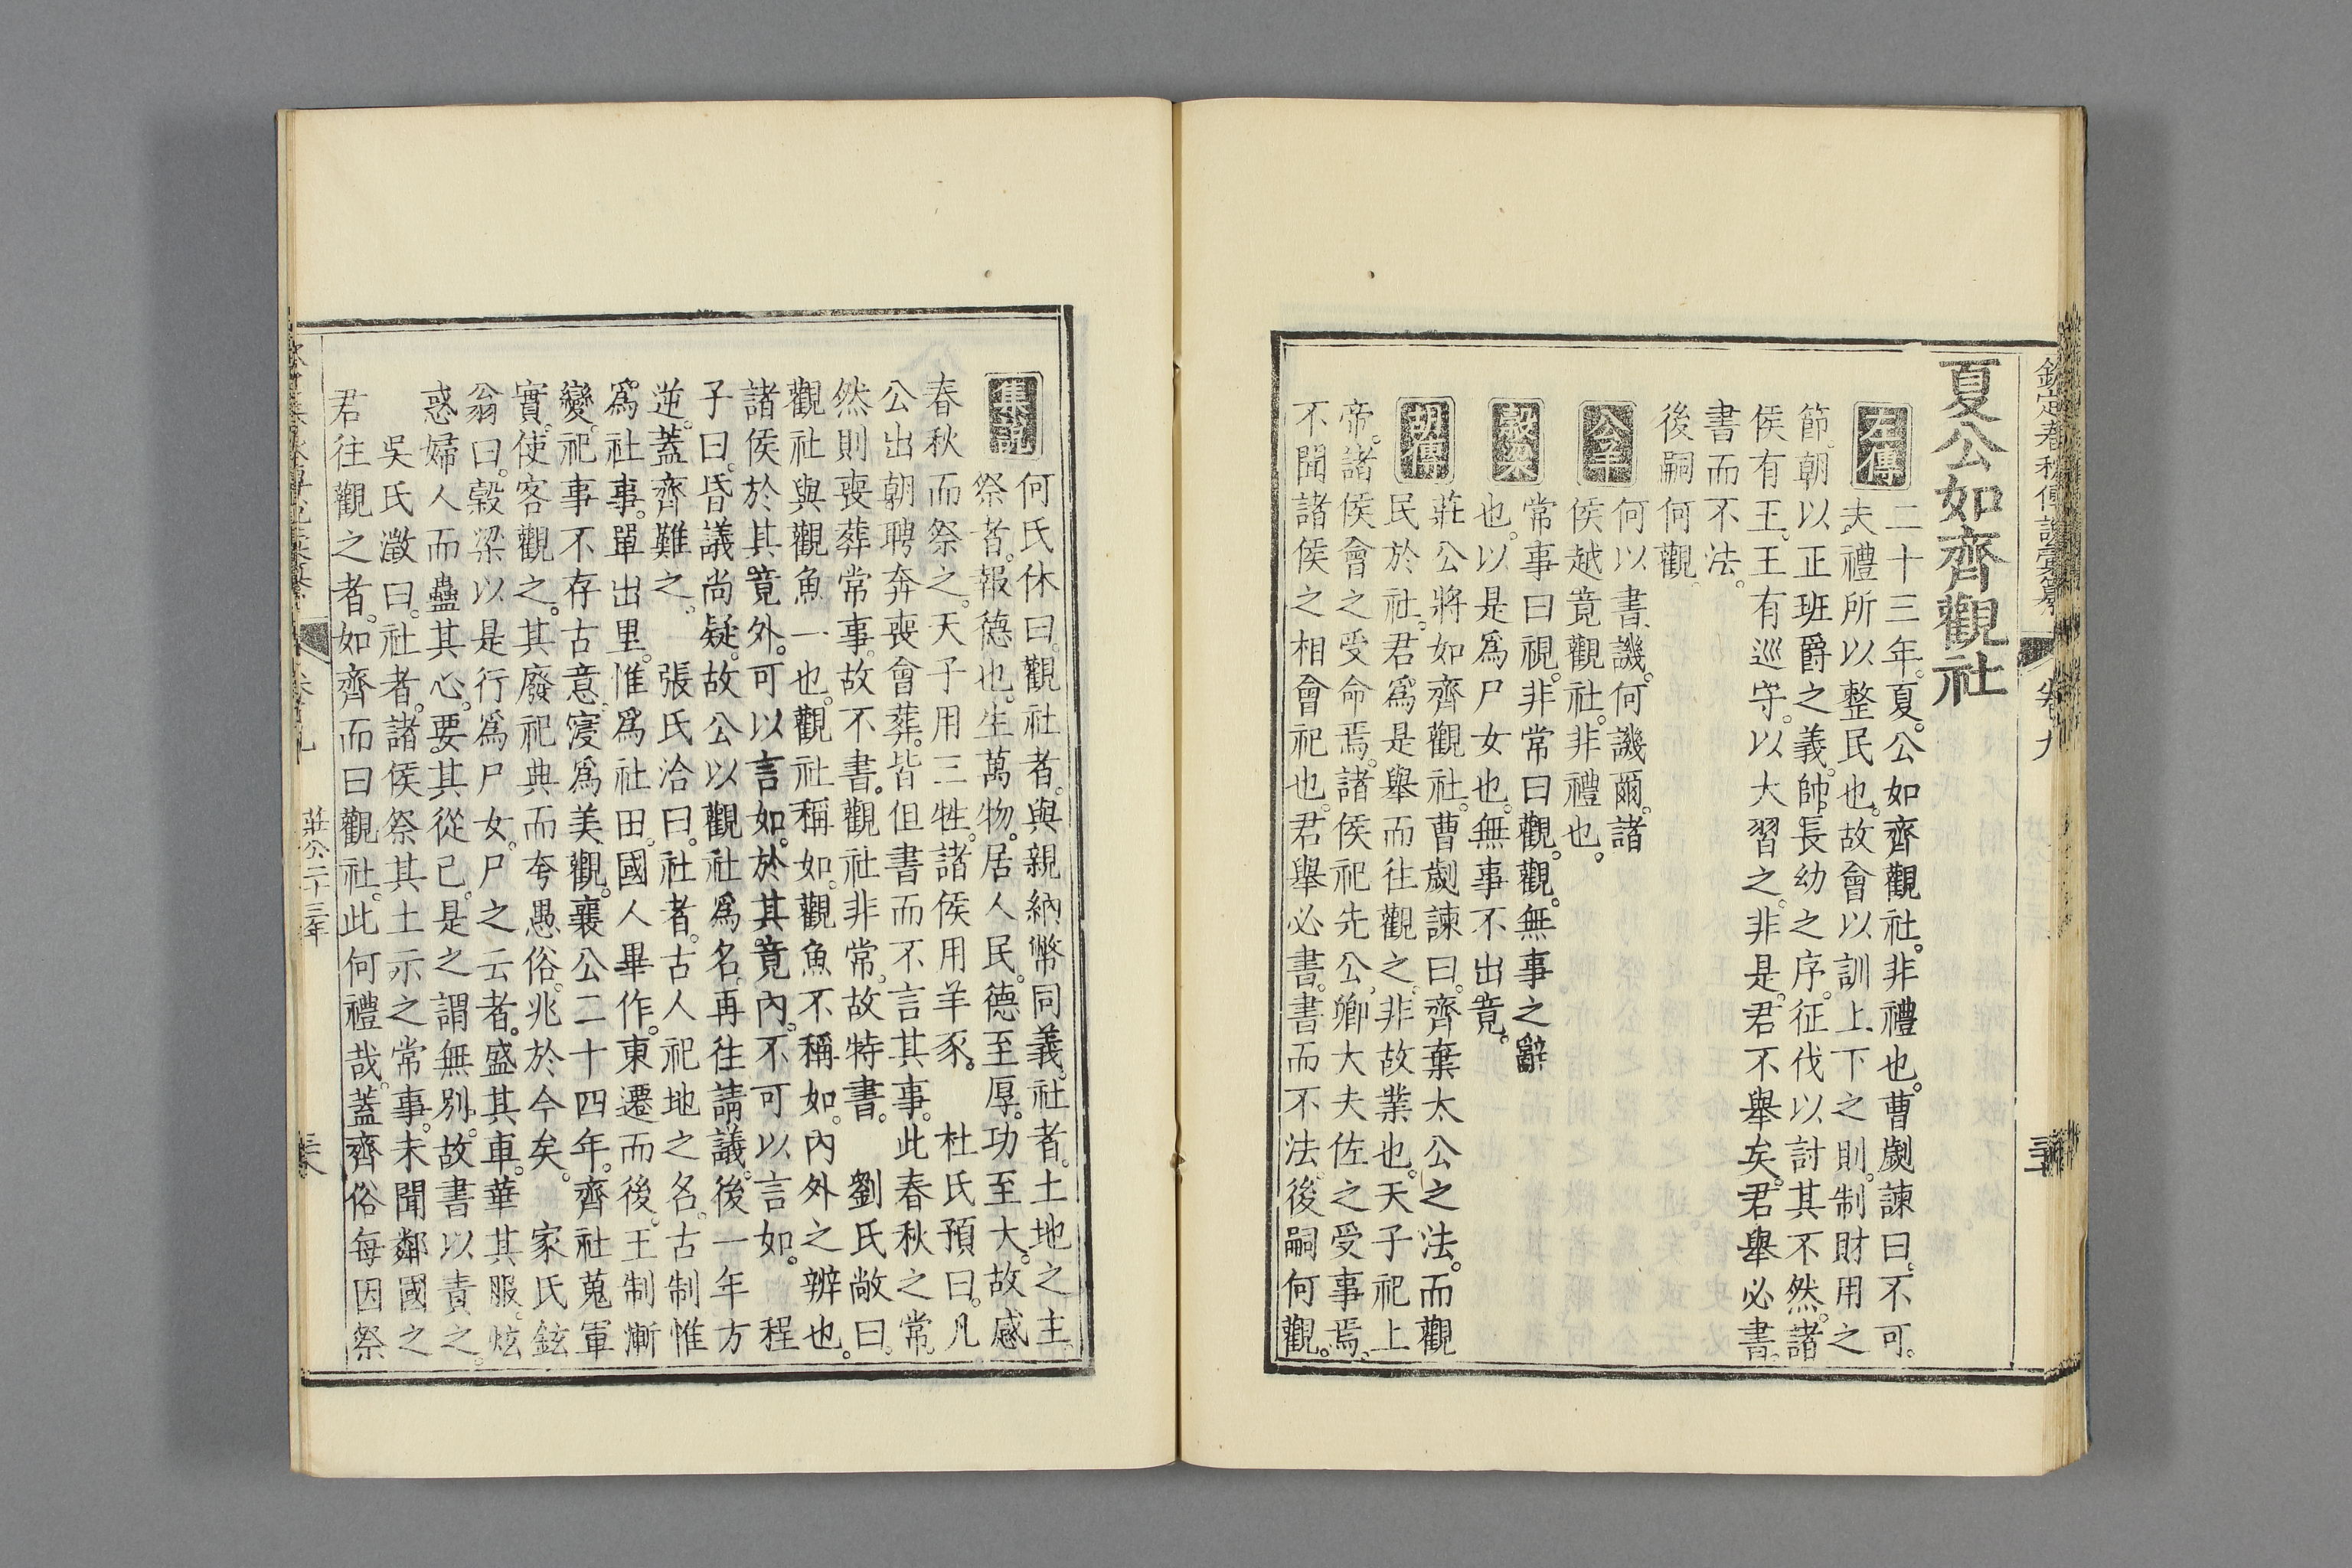 欽定春秋傳說彙纂 卷九
夏公如齊觀社
左傳
二十三年。夏。公如齊觀社。非禮也。曹劌諫曰。不可。
夫禮所以整民也。故會以訓上下之則。制財用之
節。朝以正班爵之義。帥長幼之序。征伐以討其不然。諸
侯有王。王有巡守。以大習之。非是。君不舉矣。君舉必書。
書而不法。
後嗣何觀。
公羊
何以書。譏。何譏爾。諸
侯越竟觀社。非禮也。
穀梁
常事曰視。非常曰觀。觀。無事之辭
也。以是爲尸女也。無事不出竟。
胡傳
莊公將如齊觀社。曹劌諫曰。齊棄太公之法。而觀
民於社。君爲是舉而往觀之。非故業也。天子祀上
帝。諸侯會之受命焉。諸侯祀先公。卿大夫佐之受事焉。
不聞諸侯之相會祀也。君舉必書。書而不法。後嗣何觀。
集說
何氏休曰。觀社者。與親納幣同義。社者。土地之主。
祭者。報德也。生萬物。居人民。德至厚。功至大。故感
春秋而祭之。天子用三牲。諸侯用羊豕。 杜氏預曰。凡
公出朝聘奔喪會葬。皆但書而不言其事。此春秋之常。
然則喪葬常事。故不書。觀社非常。故特書。 劉氏敞曰。
觀社與觀魚一也。觀社稱如。觀魚不稱如。內外之辨也。
諸侯於其竟外。可以言如。於其竟內。不可以言如。 程
子曰。昏議尚疑。故公以觀社爲名。再往請議。後一年方
逆。蓋齊難之。 張氏洽曰。社者。古人祀地之名。古制惟
爲社事。單出里。惟爲社田。國人畢作。東遷而後。王制漸
變。祀事不存古意。寖爲美觀。襄公二十四年。齊社蒐軍
實。使客觀之。其廢祀典而夸愚俗。兆於今矣。 家氏鉉
翁曰。穀梁以是行爲尸女。尸之云者。盛其車。華其服。炫
惑婦人而蠱其心。要其從已。是之謂無別。故書以責之。
吳氏澂曰。社者。諸侯祭其土示之常事。未聞鄰國之
君往觀之者。如齊而曰觀社。此何禮哉。蓋齊俗每因祭
莊公二十三年